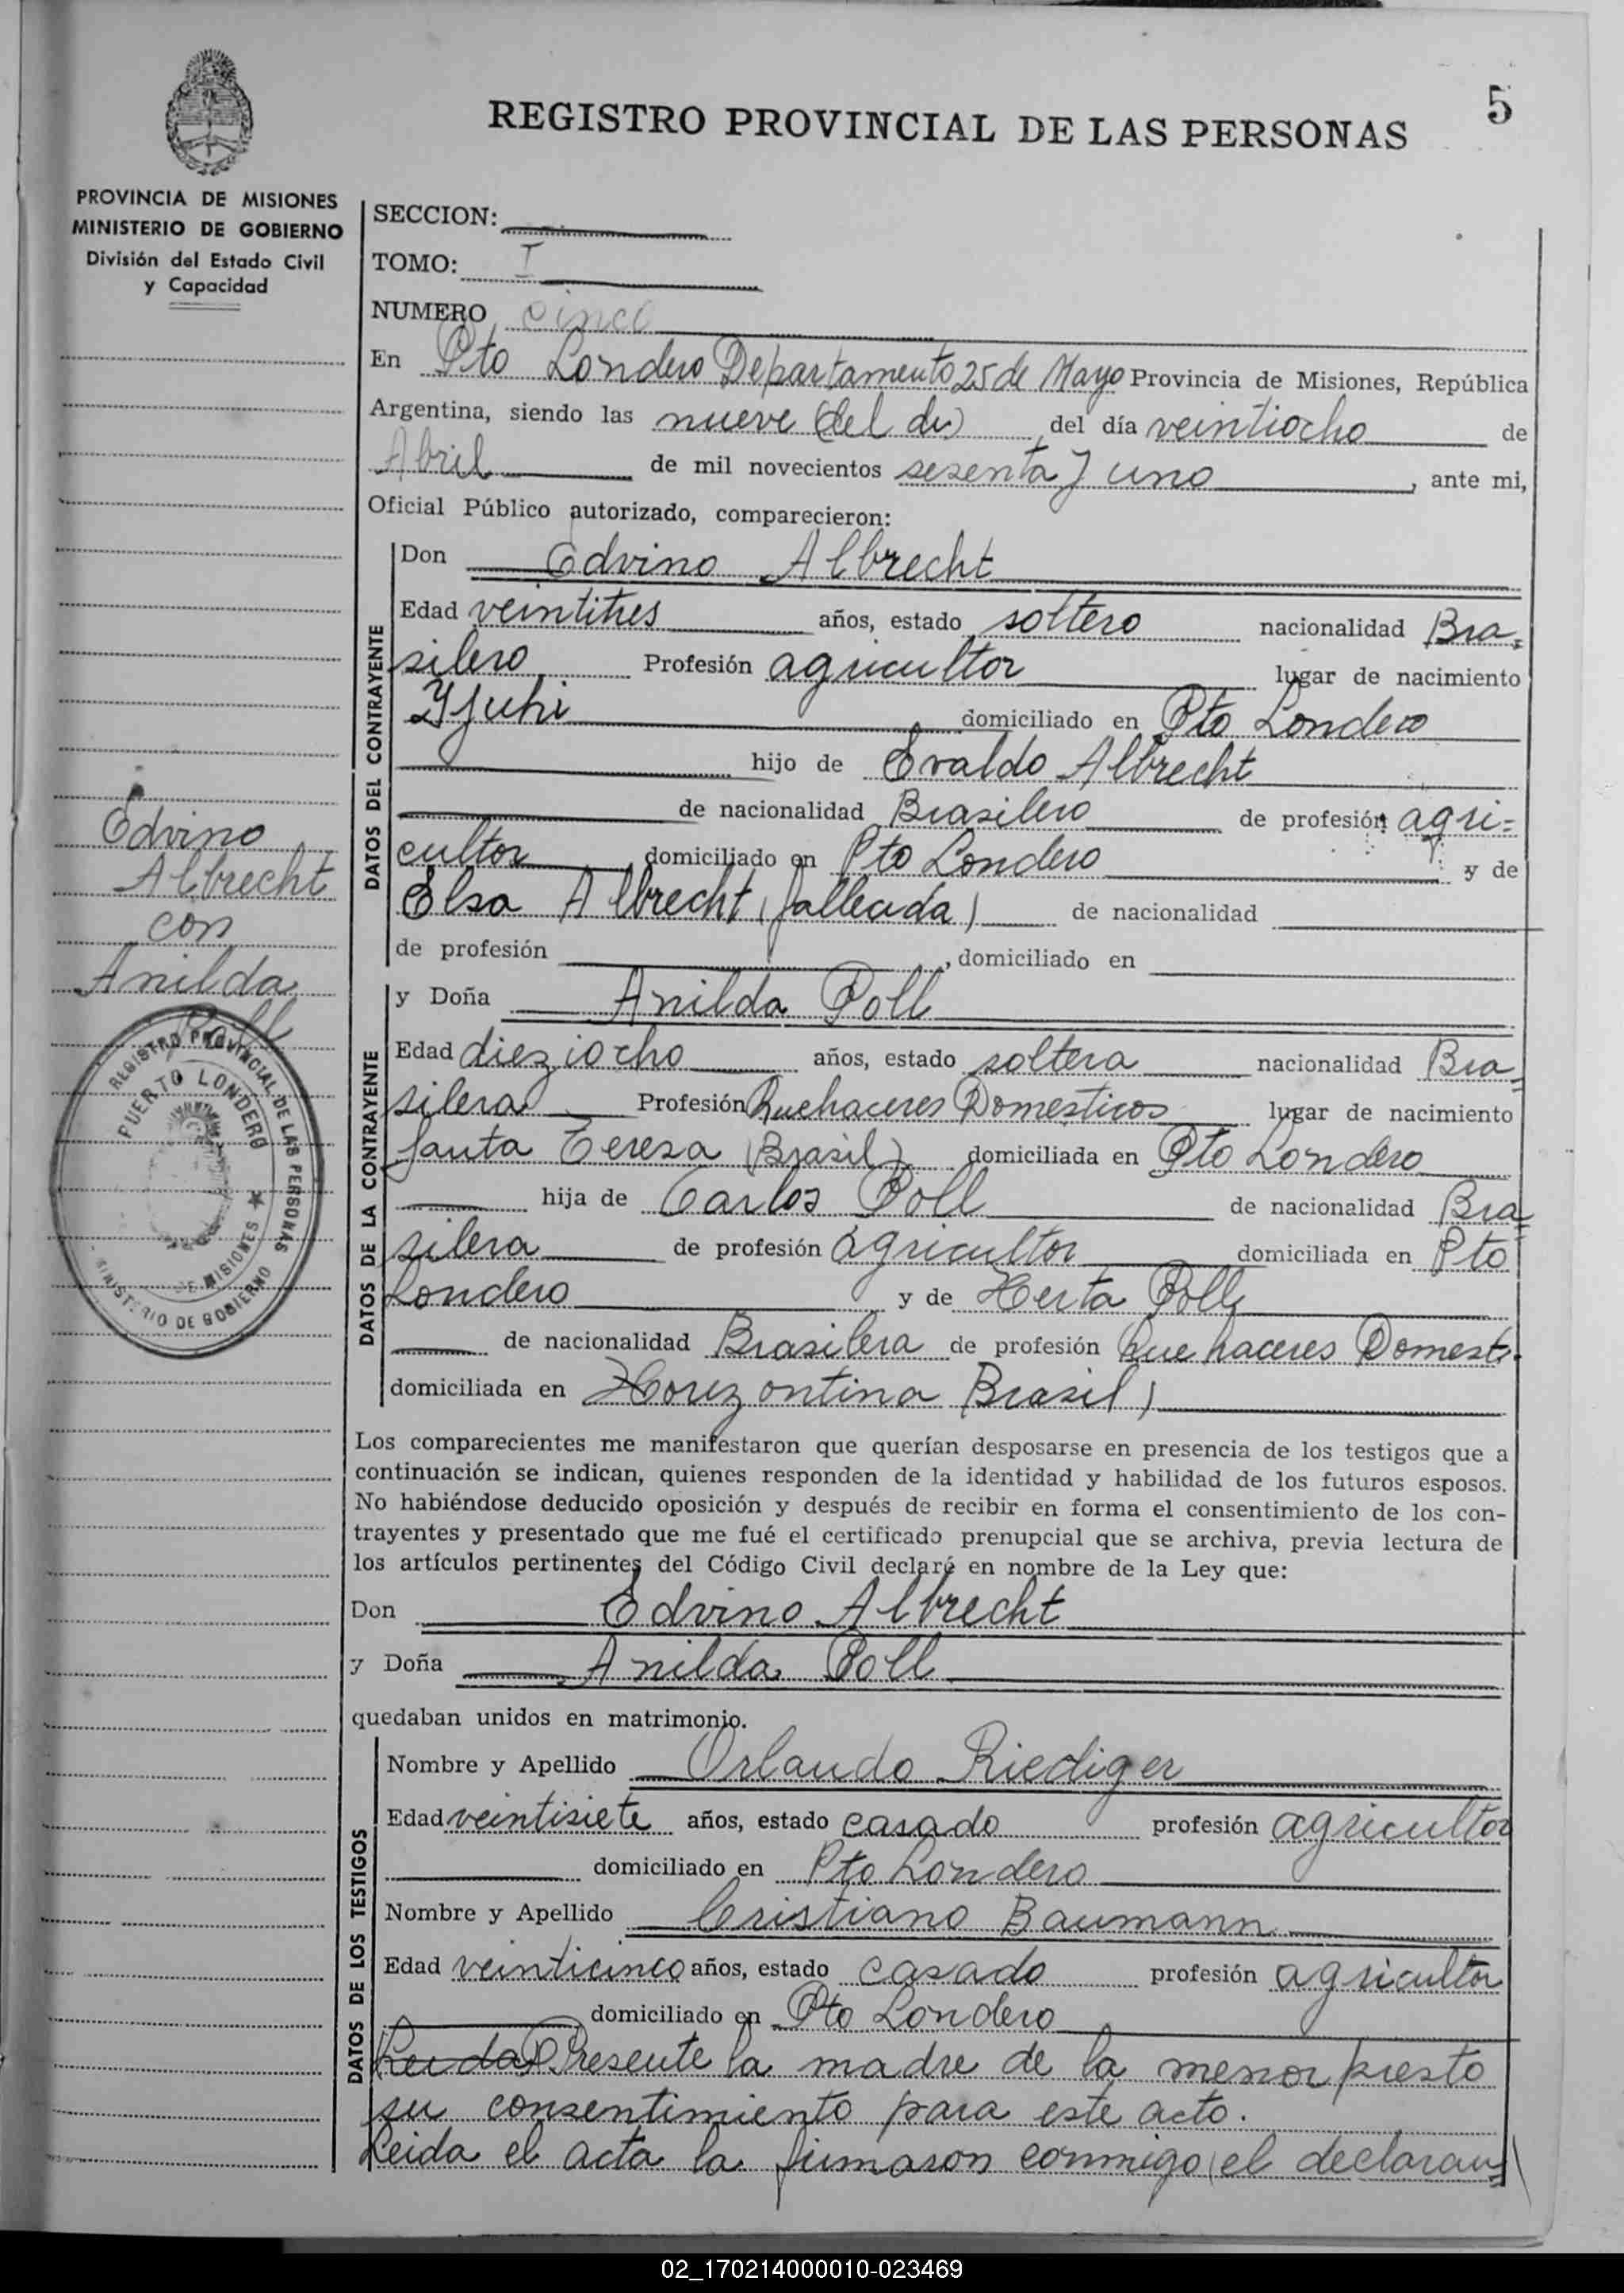 5
REGISTRO PROVINCIAL DE LAS PERSONAS
PROVINCIA DE MISIONES
MINISTERIO DE GOBIERNO
División del Estado Civil
y Capacidad
SECCION:
TOMO: I
NUMERO cinco
En Pto Londero Departamento 25 de Mayo Provincia de Misiones, República
Argentina, siendo las nueve del día veintiocho de
Abril de mil novecientos sesenta y uno, ante mi,
Oficial Público autorizado, comparecieron:
DATOS DEL CONTRAYENTE
Don Edvino Albrecht
Edad veintitres años, estado soltero nacionalidad Bra-
silero Profesión agricultor lugar de nacimiento
Yjuhi domiciliado en Pto Londero
hijo de Evaldo Albrecht
de nacionalidad Brasilero de profesión agri-
cultor domiciliado en Pto Londero y de
Elsa Albrecht (fallecida) de nacionalidad
de profesión , domiciliado en
Edvino
Albrecht
con
Anilda
Poll
REGISTRO PROVINCIAL DE LAS PERSONAS
PUERTO LONDERO
DE MISIONES
MINISTERIO DE GOBIERNO
DATOS DE LA CONTRAYENTE
y Doña Anilda Poll
Edad dieziocho años, estado soltera nacionalidad Bra-
silera Profesión Quehaceres Domesticos lugar de nacimiento
Santa Teresa (Brasil) domiciliada en Pto Londero
hija de Carlos Poll de nacionalidad Bra-
silera de profesión agricultor domiciliada en Pto
Londero y de Herta Poll
de nacionalidad Brasilera de profesión Quehaceres Domest.
domiciliada en Horizontina Brasil)
Los comparecientes me manifestaron que querían desposarse en presencia de los testigos que a
continuación se indican, quienes responden de la identidad y habilidad de los futuros esposos.
No habiéndose deducido oposición y después de recibir en forma el consentimiento de los con-
trayentes y presentado que me fué el certificado prenupcial que se archiva, previa lectura de
los artículos pertinentes del Código Civil declaré en nombre de la Ley que:
Don Edvino Albrecht
y Doña Anilda Poll
quedaban unidos en matrimonio.
DATOS DE LOS TESTIGOS
Nombre y Apellido Orlando Riediger
Edad veintisiete años, estado casado profesión agricultor
domiciliado en Pto Londero
Nombre y Apellido Cristiano Baumann
Edad veinticinco años, estado casado profesión agricultor
domiciliado en Pto Londero
Leida Presente la madre de la menor presto
su consentimiento para este acto.
Leida el acta la firmaron conmigo el declaran-
02_170214000010-023469